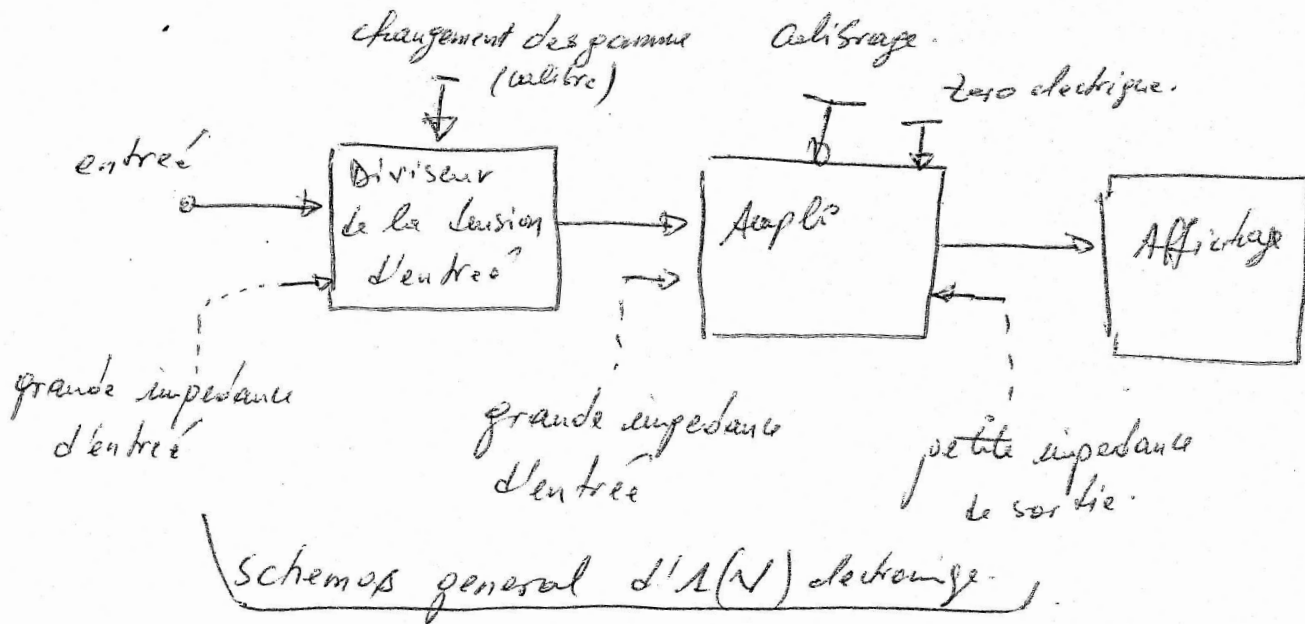 changement des gamme
(calibre)
calibrage.
zero electrique.
entreé
Diviseur
de la tension
d'entreé
Ampli
Affichage
grande impedance
d'entreé
grande impedance
d'entreé
petite impedance
de sortie.
schemas general d'1(V) electronige.